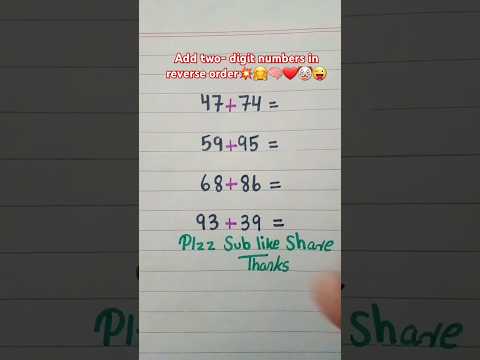 Add two- digit numbers in
reverse order💥🤗🧠❤️🤡😜
47+74=
59+95=
68+86=
93+39=
Plzz Sub like Share
Thanks